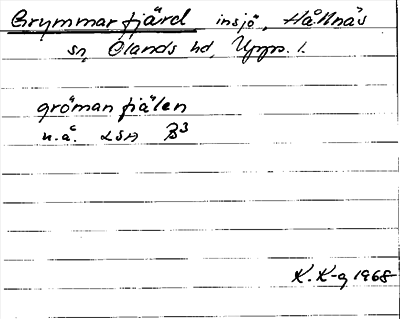 Grymmarfjärd insjö, Hållnäs
sn, Olands hd, Upps. l.
gröman fjälen
n.å. LSA B³
K. K-g 1968